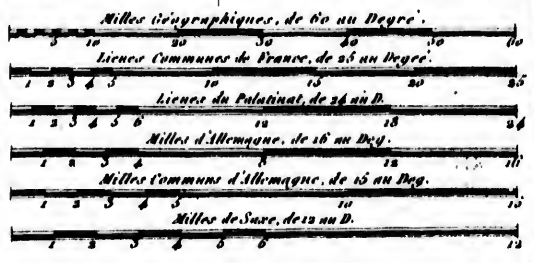 Milles Géographiques, de 60 au Degré.
5 10 20 30 40 50 60
Lieues Communes de France, de 25 au Degré.
1 2 3 4 5 10 15 20 25
Lieues du Palatinat, de 24 au D.
1 2 3 4 5 6 12 18 24
Milles d'Allemagne, de 16 au Deg.
1 2 3 4 8 12 16
Milles Communs d'Allemagne, de 15 au Deg.
1 2 3 4 5 10 15
Milles de Saxe, de 12 au D.
1 2 3 4 5 6 12